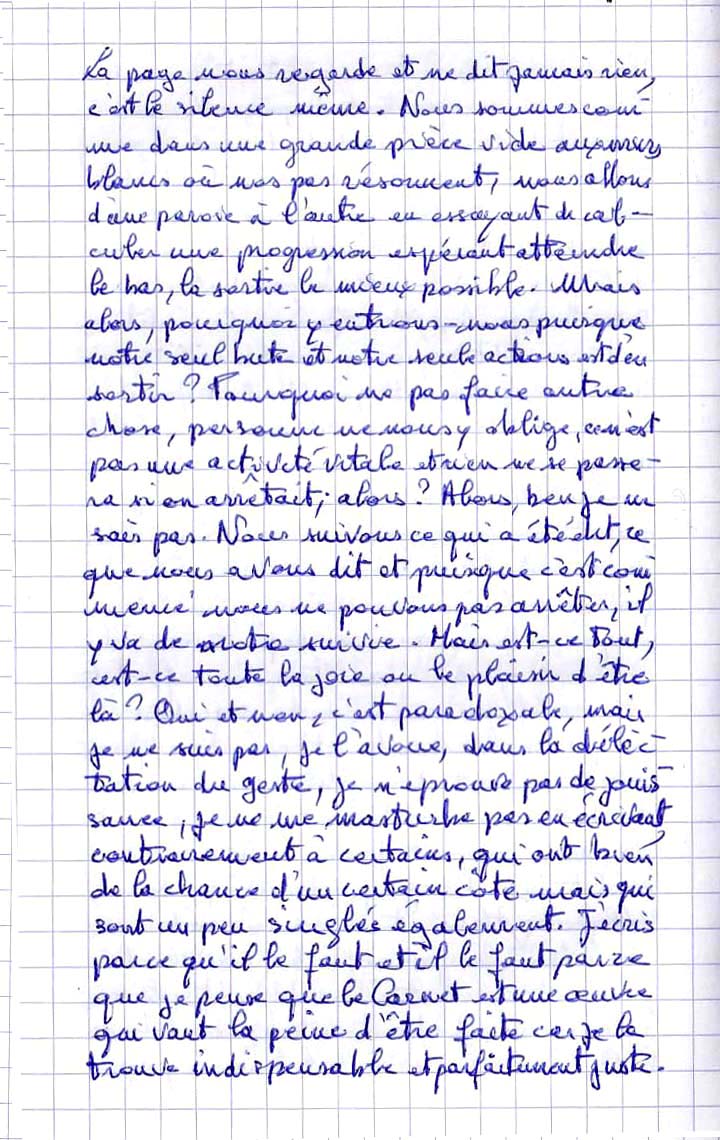 La page nous regarde et ne dit jamais rien,
c'est le silence même. Nous sommes com-
me dans une grande pièce vide aux murs
blancs où nos pas résonnent, nous allons
d'une paroie à l'autre en essayant de cal-
culer une progression espérant atteindre
le bas, la sortie le mieux possible. Mais
alors, pourquoi y entrons-nous puisque
notre seul bute et notre seule actions est d'en
sortir ? Pourquoi ne pas faire autre
chose, personne ne nous y oblige, ce n'est
pas une activité vitale et rien ne se passe-
ra si on arrêtait, alors ? Alors, ben je ne
sais pas. Nous suivons ce qui a été dit, ce
que nous avons dit et puisque c'est com
mencé nous ne pouvons pas arrêter, il
y va de notre survie. Mais est-ce tout,
est-ce toute la joie ou le plaisir d'être
là ? Oui et non, c'est paradoxale, mais
je ne suis pas, je l'avoue, dans la délec-
tation du geste, je n'éprouve pas de jouis-
sance, je ne me masturbe pas en écrivant,
contrairement à certains, qui ont bien
de la chance d'un certain côté mais qui
sont un peu singlés également. J'écris
parce qu'il le faut et il le faut parce
que je pense que le Carnet est une œuvre
qui vaut la peine d'être faite car je la
trouve indispensable et parfaitement juste.